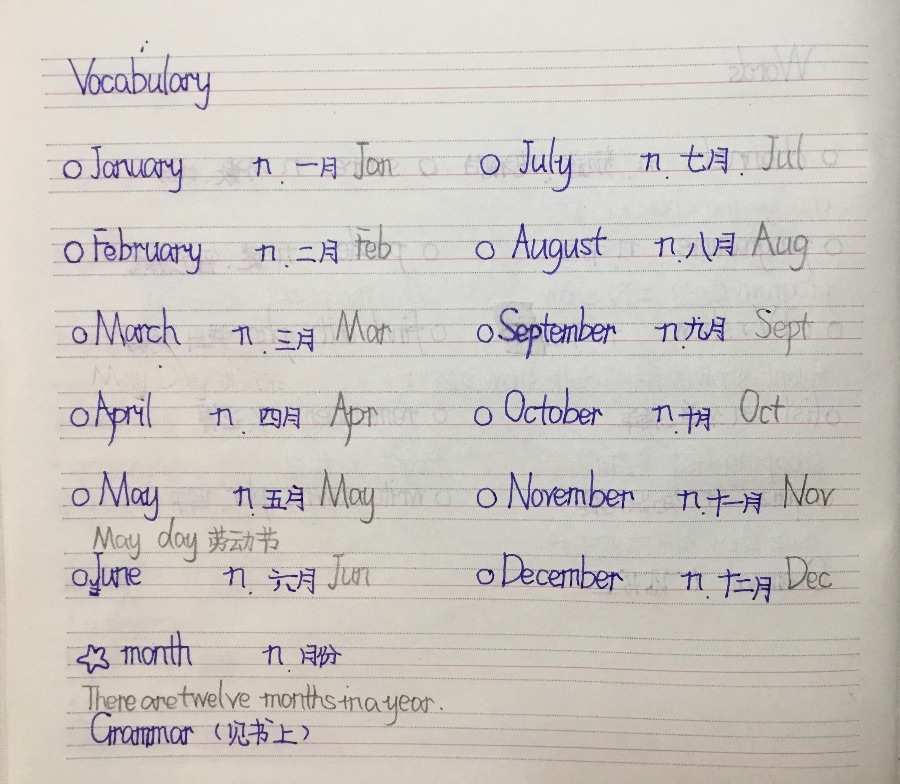 Vocabulary
○ January n. 一月 Jan ○ July n. 七月. Jul
○ February n. 二月 Feb ○ August n. 八月 Aug
○ March n. 三月 Mar ○ September n. 九月 Sept
○ April n. 四月 Apr ○ October n. 十月 Oct
○ May n. 五月 May ○ November n. 十一月 Nov
May day 劳动节
○ June n. 六月 Jun ○ December n. 十二月 Dec
☆ month n. 月份
There are twelve months in a year.
Grammar (见书上)